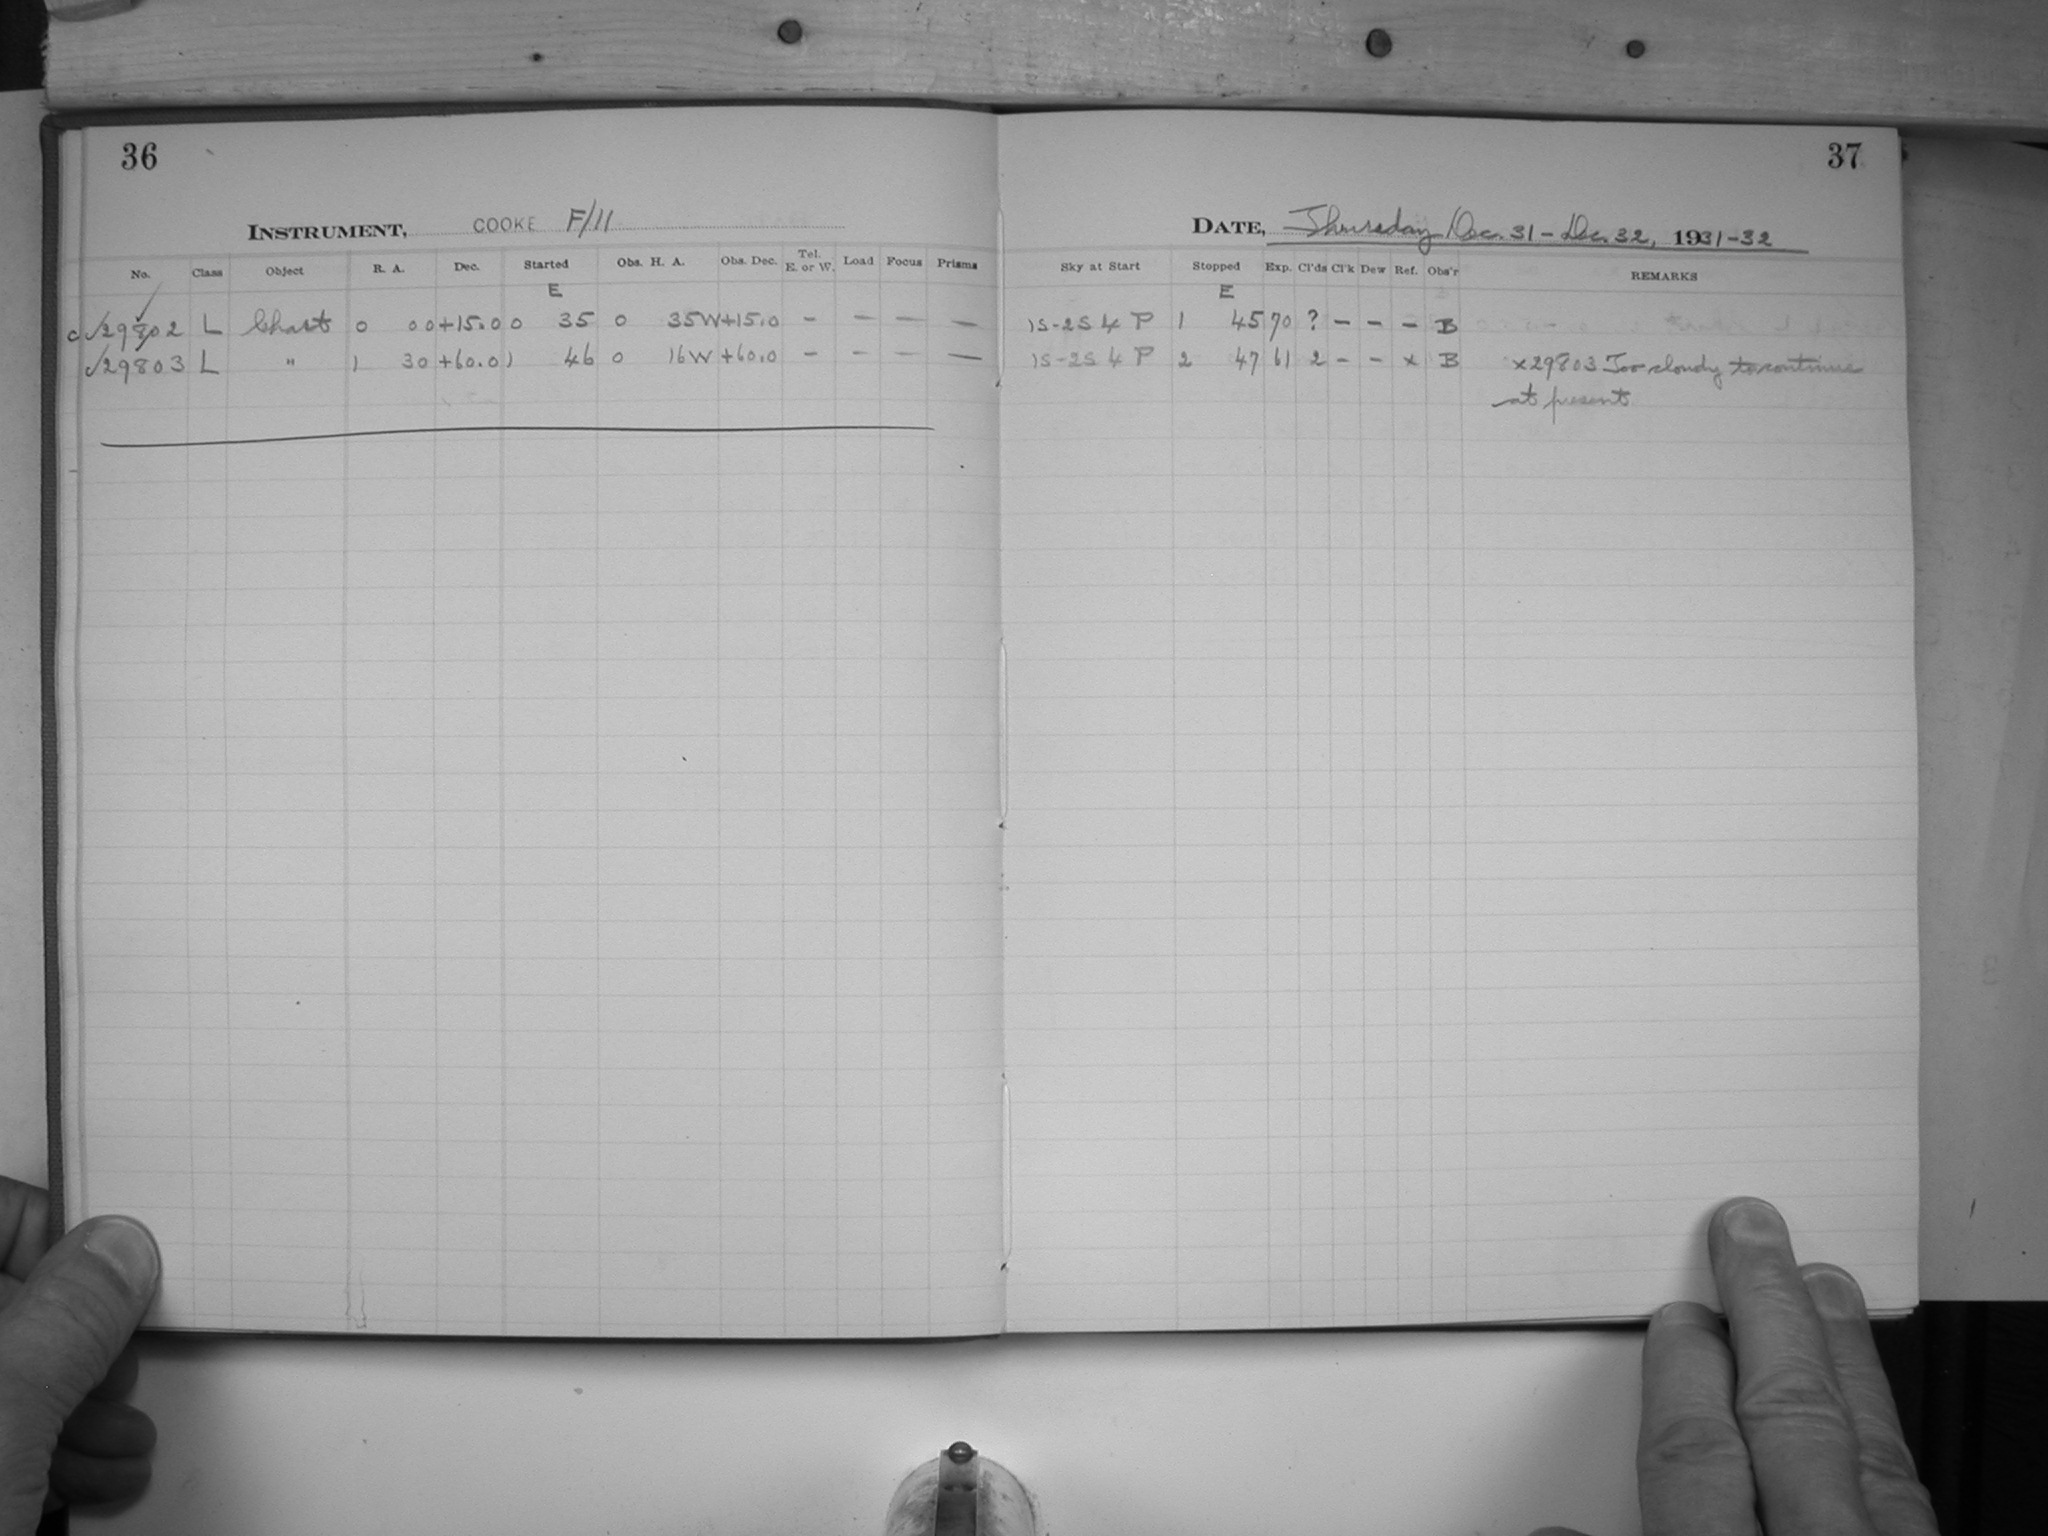 36
INSTRUMENT, COOKE F/11
No. Class Object R. A. Dec. Started Obs. H. A. Obs. Dec. Tel. E. or W. Load Focus Prisms
E
c √29802 L Chart 0 00 +15.0 0 35 0 35W +15.0 - - - -
√29803 L " 1 30 +60.0 1 46 0 16W +60.0 - - - -
37
DATE, Thursday Dec. 31 - Dec. 32, 1931-32
Sky at Start Stopped Exp. Cl'ds Cl'k Dew Ref. Obs'r REMARKS
E
1S-2S 4 P 1 45 70 ? - - - B
1S-2S 4 P 2 47 61 2 - - x B x29803 Too cloudy to continue
at present